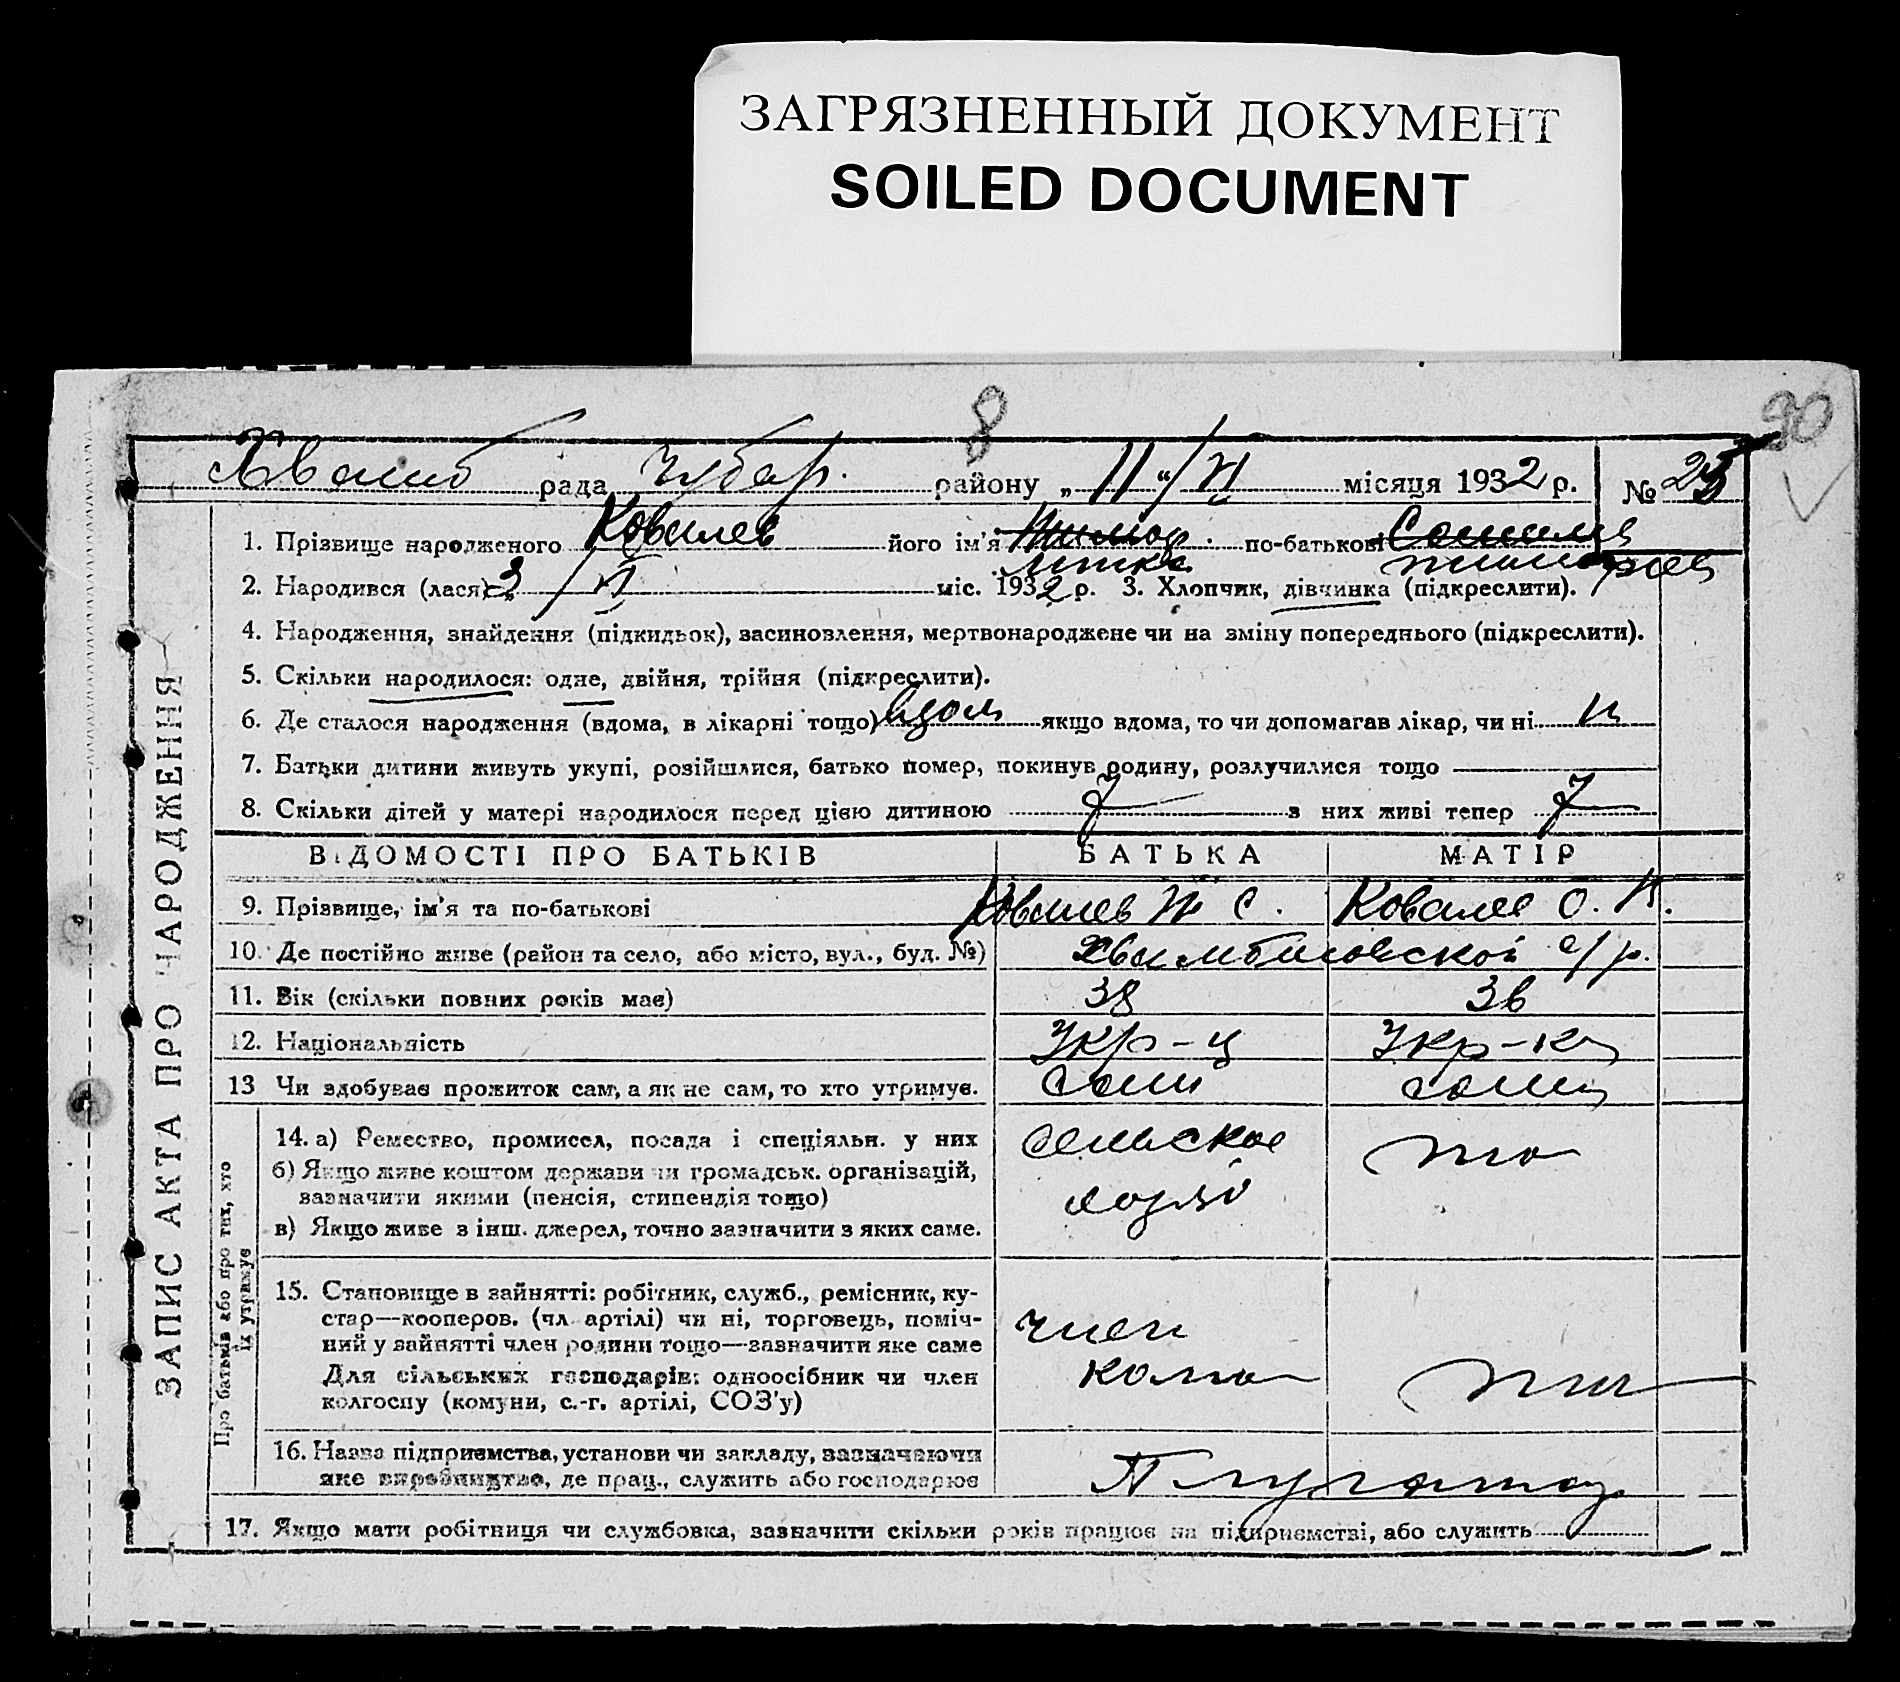 ЗАГРЯЗНЕННЫЙ ДОКУМЕНТ
SOILED DOCUMENT
8
90
рада Чубар. району „ 11 “ / VI місяця 1932 р. № 25
1. Прізвище народженого Ковалев його ім'я по-батькові
2. Народився (лася) 3 / VI міс. 1932 р. 3. Хлопчик, дівчинка (підкреслити).
4. Народження, знайдення (підкидьок), засиновлення, мертвонароджене чи на зміну попереднього (підкреслити).
5. Скільки народилося: одне, двійня, трійня (підкреслити).
6. Де сталося народження (вдома, в лікарні тощо) вдом якщо вдома, то чи допомагав лікар, чи ні н
7. Батьки дитини живуть укупі, розійшлися, батько помер, покинув родину, розлучилися тощо
8. Скільки дітей у матері народилося перед цією дитиною 7 з них живі тепер 7
ВІДОМОСТІ ПРО БАТЬКІВ БАТЬКА МАТІР
9. Прізвище, ім'я та по-батькові Ковалев С. Ковалев О.
10. Де постійно живе (район та село, або місто, вул., буд. №) с/р.
11. Вік (скільки повних років має) 38 36
12. Національність Укр-ц Укр-ка
13 Чи здобуває прожиток сам, а як не сам, то хто утримує. сам сама
ЗАПИС АКТА ПРО НАРОДЖЕННЯ
Про батьків або про тих, хто
їх утримує
14. а) Ремество, промисел, посада і спеціяльн. у них сельское
б) Якщо живе коштом держави чи громадськ. організацій,
зазначити якими (пенсія, стипендія тощо)
в) Якщо живе з інш. джерел, точно зазначити з яких саме.
15. Становище в зайнятті: робітник, служб., ремісник, ку-
стар—кооперов. (чл. артілі) чи ні, торговець, поміч-
ний у зайнятті член родини тощо—зазначити яке саме член
Для сільських господарів: одноосібник чи член
колгоспу (комуни, с.-г. артілі, СОЗ'у)
16. Назва підприємства, установи чи закладу, зазначаючи
яке виробництво, де прац., служить або господарює
17. Якщо мати робітниця чи службовка, зазначити скільки років працює на підприємстві, або служить